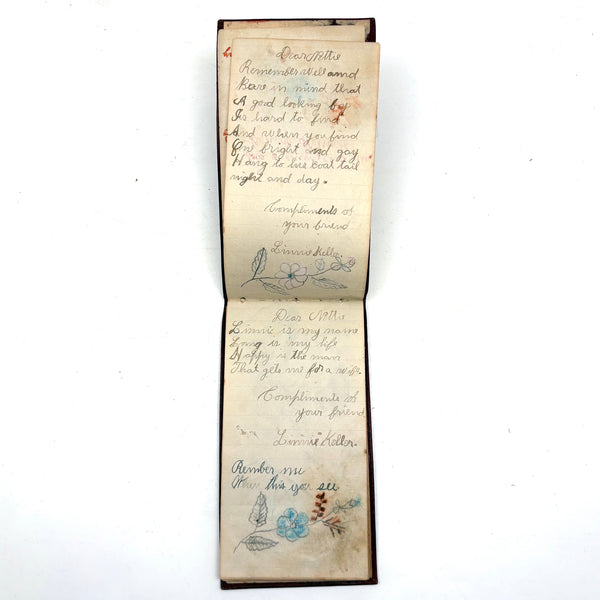 Dear Nettie
Remember well and
Bare in mind that
A good looking boy
Is hard to find
And when you find
One bright and gay
Hang to his coat tail
night and day.
Compliments of
your friend
Linnie Keller.
Dear Nettie
Linnie is my name
Long is my life
Happy is the man
That gets me for a wife.
Compliments of
your friend
"Linnie" Keller.
Rember me
When this you see